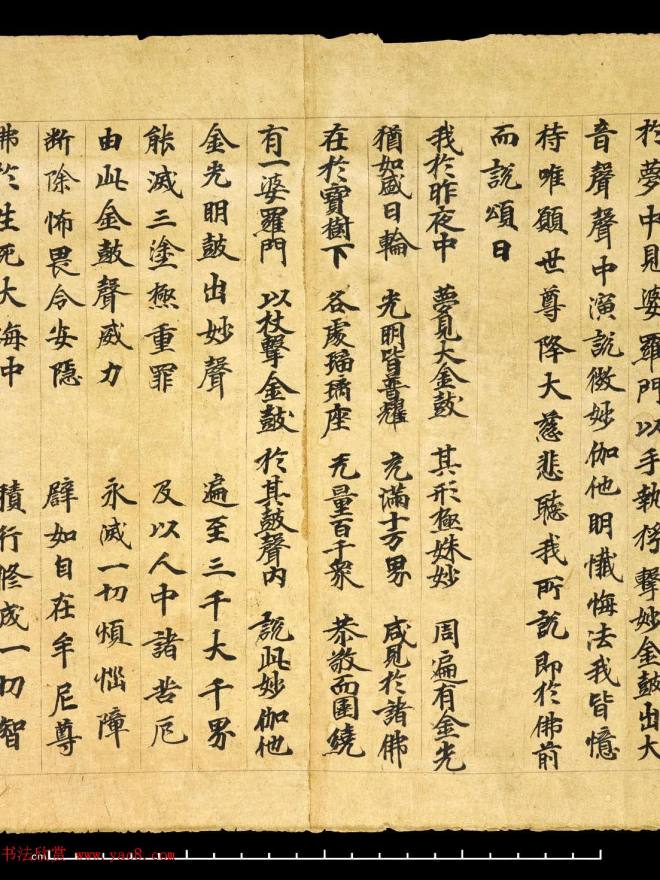 於夢中見婆羅門以手執桴擊妙金鼓出大
音聲聲中演說微妙伽他明懺悔法我皆憶
持唯願世尊降大慈悲聽我所說即於佛前
而說頌曰
我於昨夜中 夢見大金鼓 其形極姝妙 周遍有金光
猶如盛日輪 光明皆普耀 充滿十方界 咸見於諸佛
在於寶樹下 各處瑠璃座 无量百千衆 恭敬而圍繞
有一婆羅門 以杖擊金鼓 於其鼓聲內 說此妙伽他
金光明鼓出妙聲 遍至三千大千界
能滅三塗極重罪 及以人中諸苦厄
由此金鼓聲威力 永滅一切煩惱障
斷除怖畏令安隱 辟如自在牟尼尊
佛於生死大海中 積行修成一切智
书法欣赏 www.yac8.com
cm